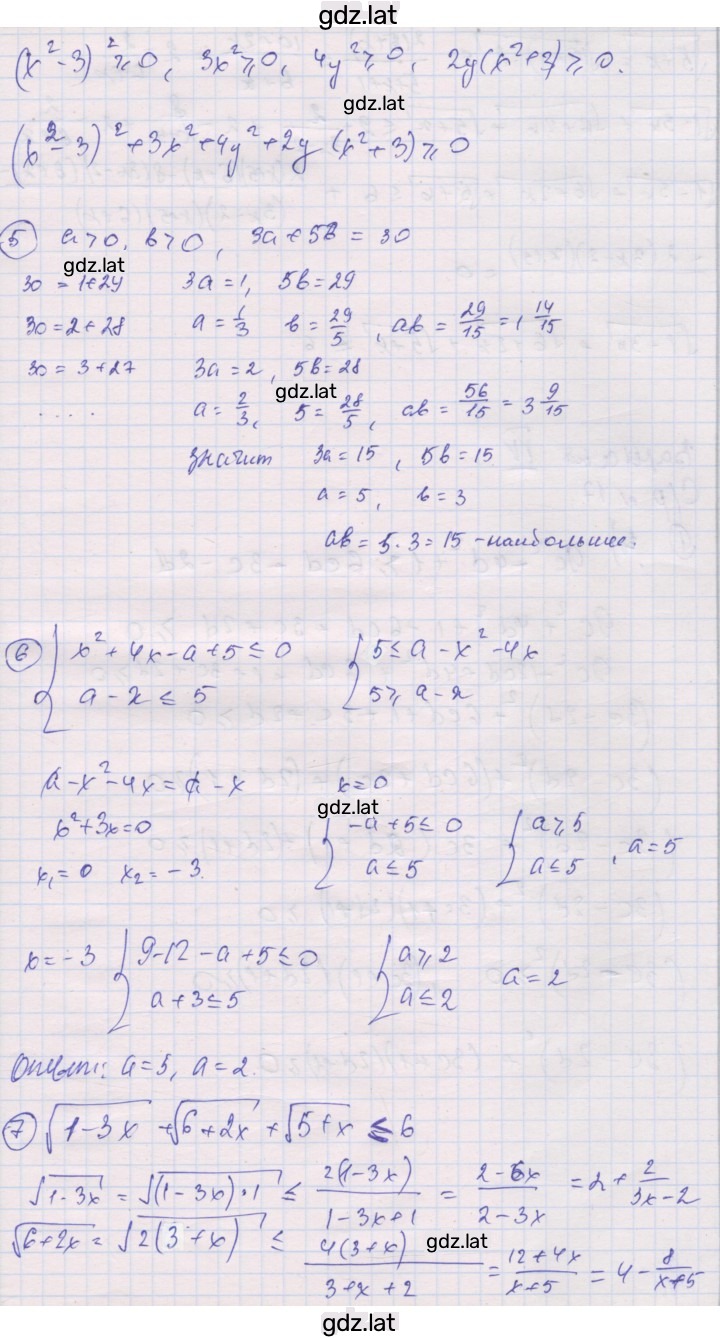 gdz.lat
(x² - 3)² ≥ 0, 3x² ≥ 0, 4y² ≥ 0, 2y(x² + 3) ≥ 0.
gdz.lat
(x² - 3)² + 3x² + 4y² + 2y (x² + 3) ≥ 0
5 a > 0, b > 0, 3a + 5b = 30
gdz.lat
30 = 1 + 29 3a = 1, 5b = 29
30 = 2 + 28 a = 1/3 b = 29/5, ab = 29/15 = 1 14/15
30 = 3 + 27 3a = 2, 5b = 28
gdz.lat
.... a = 2/3, 5 = 28/5, ab = 56/15 = 3 9/15
значит 3a = 15, 5b = 15
a = 5, b = 3
ab = 5 · 3 = 15 - наибольшее.
6 { x² + 4x - a + 5 ≤ 0 { 5 ≤ a - x² - 4x
a - x ≤ 5 5 ≥ a - x
a - x² - 4x = a - x x = 0
gdz.lat
x² + 3x = 0 { -a + 5 ≤ 0 { a ≥ 5
x₁ = 0 x₂ = -3. a ≤ 5 a ≤ 5, a = 5
x = -3 { 9 - 12 - a + 5 ≤ 0 { a ≥ 2
a + 3 ≤ 5 a ≤ 2 a = 2
Ответ: a = 5, a = 2.
7 √(1 - 3x) + √(6 + 2x) + √(5 + x) ≤ 6
√(1 - 3x) = √((1 - 3x) · 1) ≤ 2(1 - 3x)/(1 - 3x + 1) = (2 - 6x)/(2 - 3x) = 2 + 2/(3x - 2)
√(6 + 2x) = √(2(3 + x)) ≤ 4(3 + x)/(3 + x + 2) = (12 + 4x)/(x + 5) = 4 - 8/(x + 5)
gdz.lat
gdz.lat